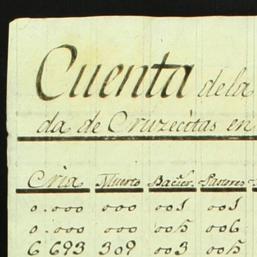 Cuenta de la
da de Cruzecitas en
Cria Muerto Bacier. Pastores
0.000 000 001 001
0.000 000 005 006
6 693 309 003 005